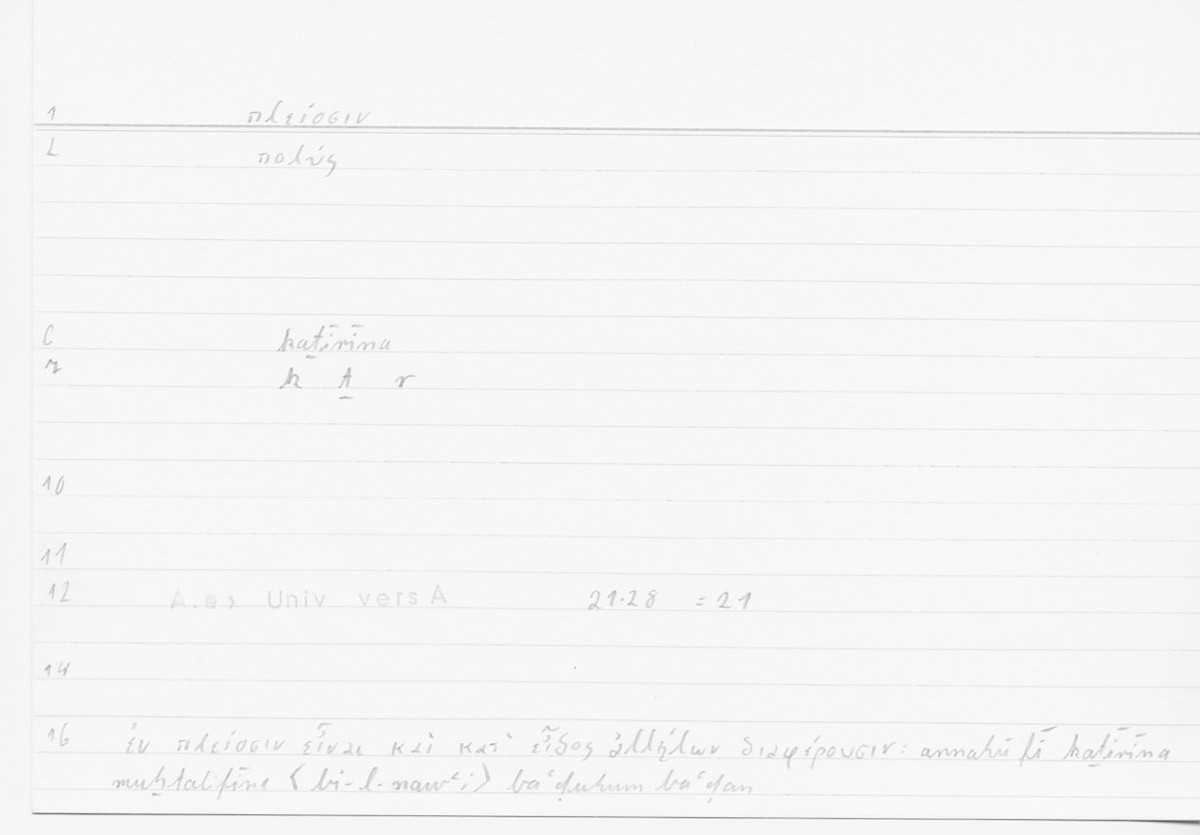 1 πλείοσιν
2 πολύς
6 kaṯīrīna
7 k ṯ r
10
11
12 A.ex Univ vers A 21.28 = 21
14
16 ἐν πλείοσιν εἶναι καὶ κατ' εἶδος ἀλλήλων διαφέρουσιν: annahū fī kaṯīrīna
muḫtalifīne ⟨bi-l-nawʿi⟩ baʿḍuhum baʿḍan